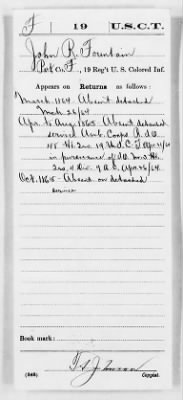 F | 19 | U.S.C.T.
John R. Fountain
Pvt Co. F, 19 Reg't U. S. Colored Inf.
Appears on Returns as follows:
March 1864 Absent detached
Mch. 26/64
Apr. to Aug. 1865 Absent detached
service Amb. Corps
19 U.S.C.T. Apr.
in pursuance of
Apr. 26/64
Oct. 1865 Absent on detached
service
Book mark:
(546) Copyist.